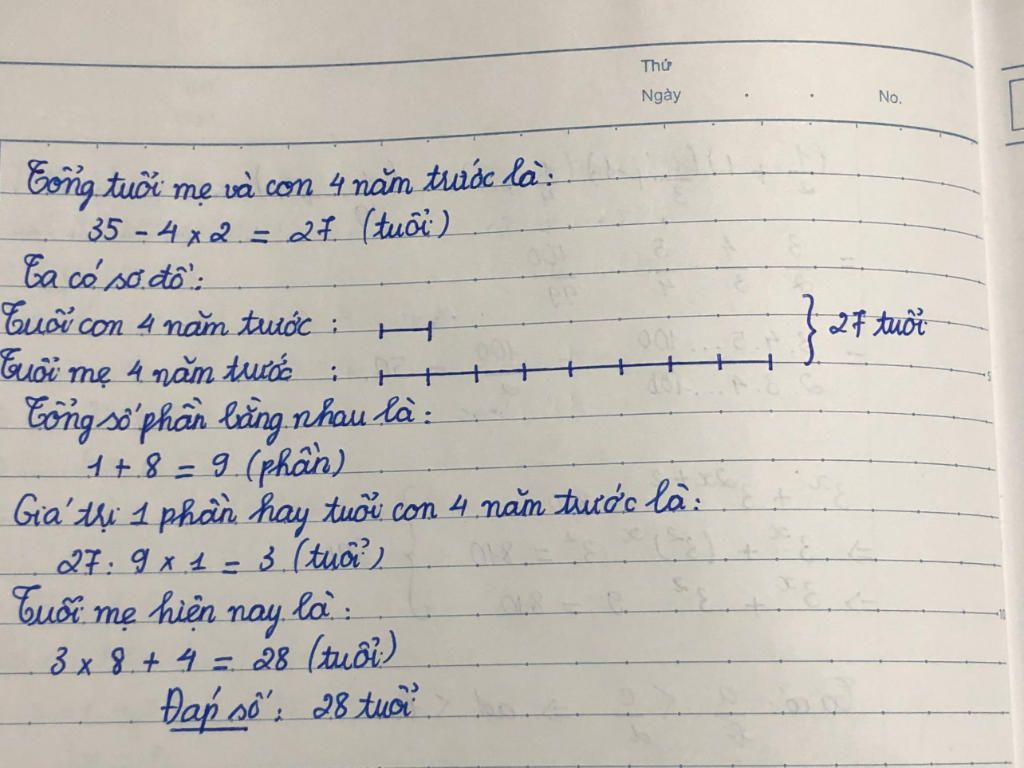 Thứ
Ngày . . No.
Tổng tuổi mẹ và con 4 năm trước là:
35 - 4 x 2 = 27 (tuổi)
Ta có sơ đồ:
Tuổi con 4 năm trước :
27 tuổi
Tuổi mẹ 4 năm trước :
Tổng số phần bằng nhau là:
1 + 8 = 9 (phần)
Giá trị 1 phần hay tuổi con 4 năm trước là:
27 : 9 x 1 = 3 (tuổi)
Tuổi mẹ hiện nay là:
3 x 8 + 4 = 28 (tuổi)
Đáp số: 28 tuổi